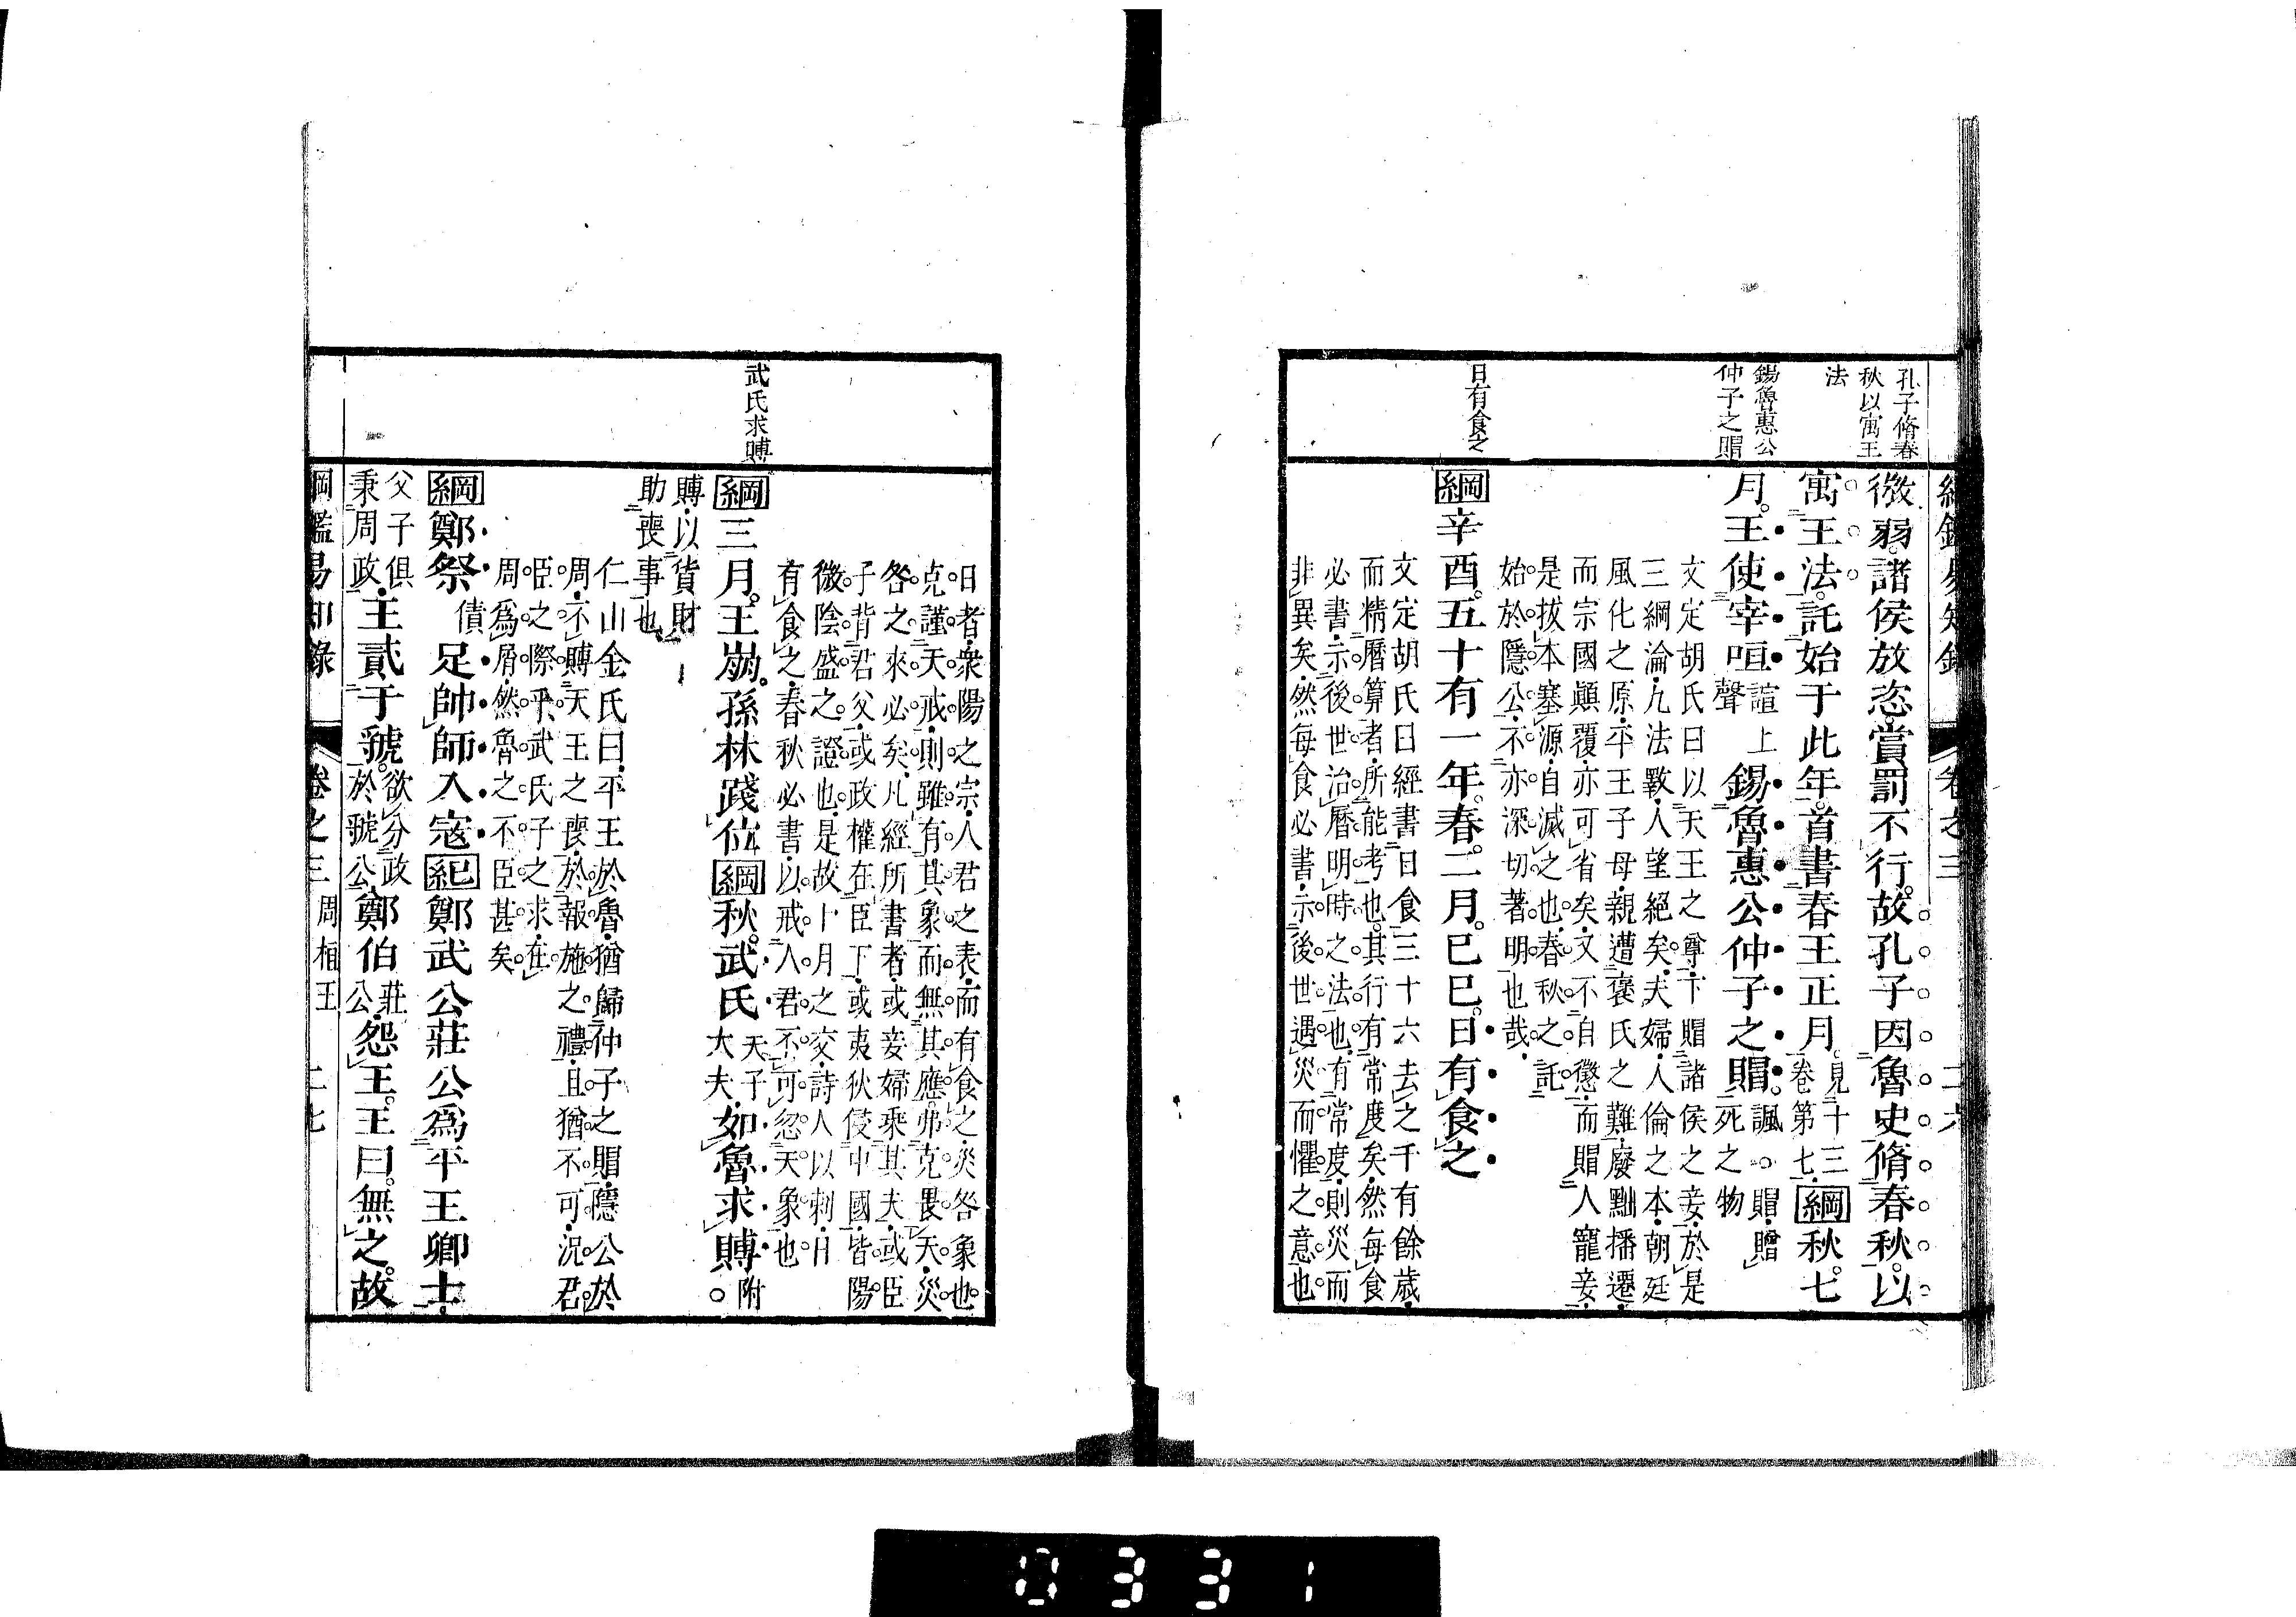 孔子脩春
秋以寓王
法
錫魯惠公
仲子之賵
日有食之
微弱諸侯放恣賞罰不行故孔子因魯史脩春秋以
寓王法託始于此年首書春王正月見十三
卷第七綱秋七
月王使宰咺諠上
聲錫魯惠公仲子之賵諷○賵贈
死之物
文定胡氏曰以天王之尊下賵諸侯之妾於是
三綱淪九法斁人望絕矣夫婦人倫之本朝廷
風化之原平王子母親遭褒氏之難廢黜播遷
而宗國顚覆亦可省矣文不自懲而賵人寵妾
是拔本塞源自滅之也春秋之託
始於隱公不亦深切著明也哉
綱辛酉五十有一年春二月己巳日有食之
文定胡氏曰經書日食三十六去之千有餘歲
而精曆算者所能考也其行有常度矣然每食
必書示後世治曆明時之法也有常度則災而
非異矣然每食必書示後世遇災而懼之意也
武氏求賻
日者衆陽之宗人君之表而有食之災咎象也
克謹天戒則雖有其象而無其應弗克畏天災
咎之來必矣凡經所書者或妾婦乘其夫或臣
子背君父或政權在臣下或夷狄侵中國皆陽
微陰盛之證也是故十月之交詩人以刺日
有食之春秋必書以戒人君不可忽天象也
綱三月王崩孫林踐位綱秋武氏天子
大夫如魯求賻附
○
賻以貨財
助喪事也
仁山金氏曰平王於魯猶歸仲子之賵隱公於
周不賻天王之喪於報施之禮且猶不可況君
臣之際乎武氏子之求在
周爲屑然魯之不臣甚矣
綱鄭祭債足帥師入寇紀鄭武公莊公爲平王卿士
父子俱
秉周政王貳于虢欲分政
於虢公鄭伯莊
公怨王王曰無之故
綱鑑易知錄 卷之三 周桓王 二七